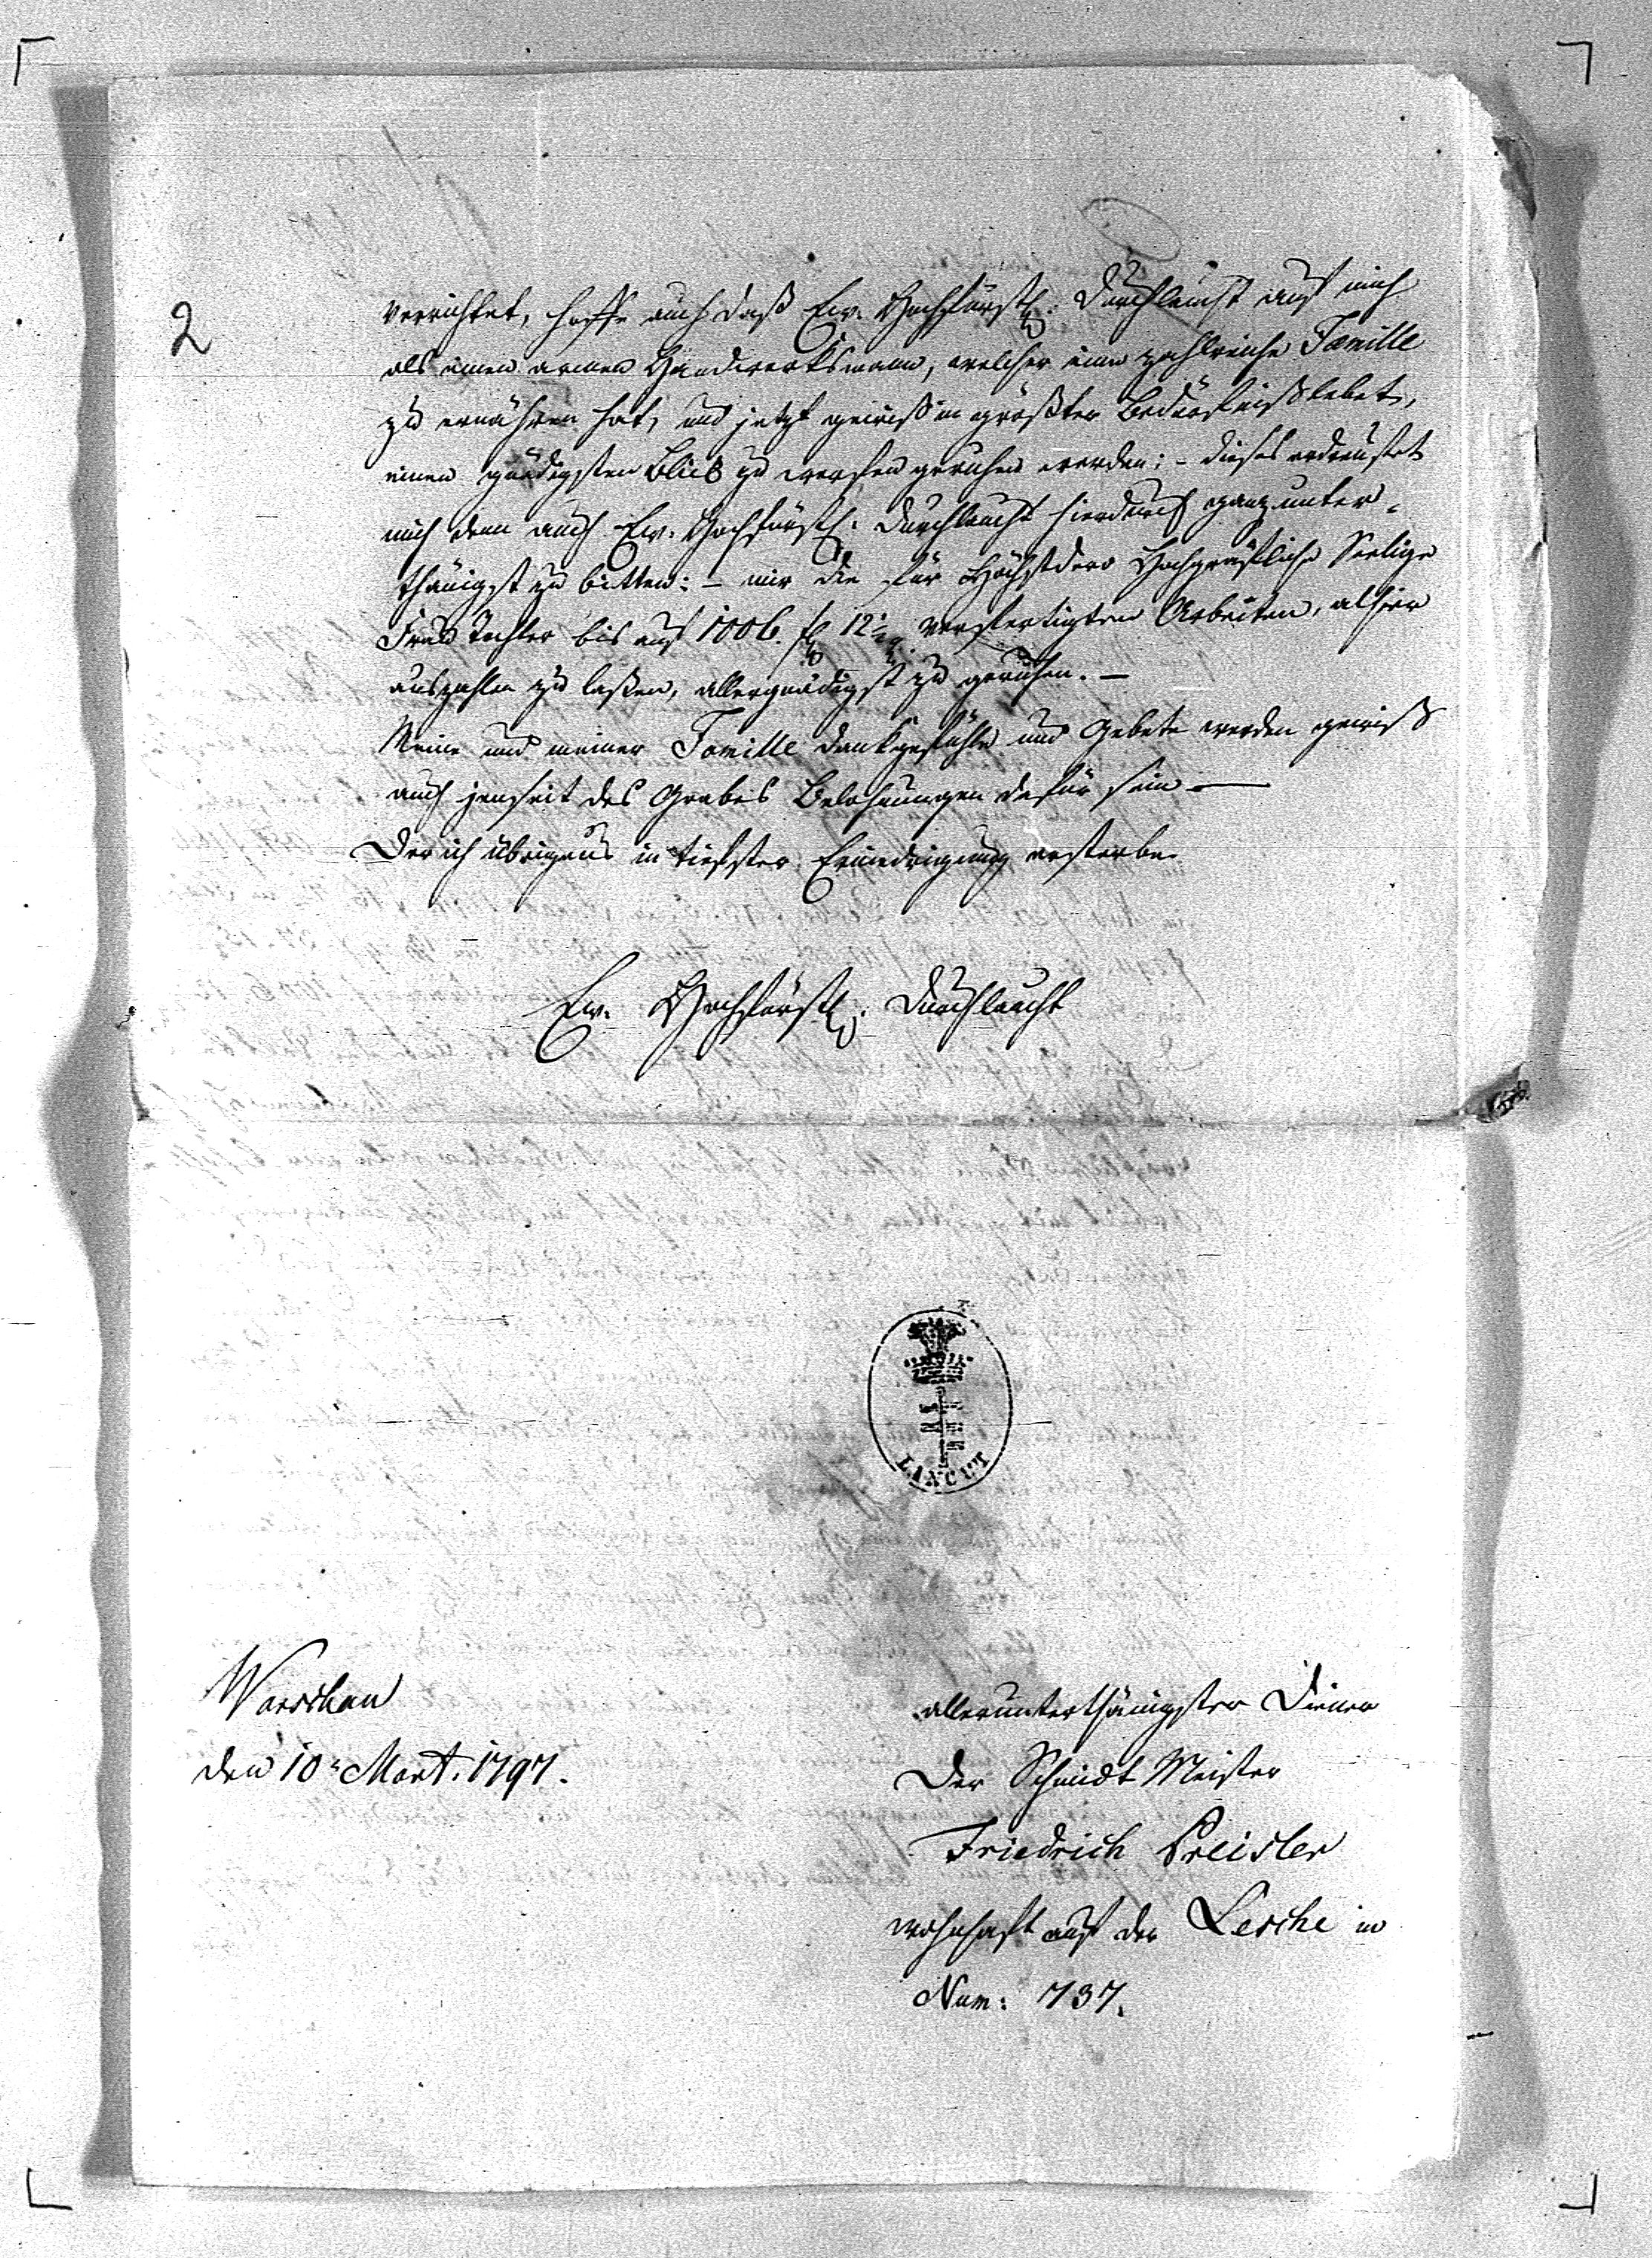 2
verrichtet, hoffe auch daß Ew. Hochfürstl: Durchlaucht auf mich
als einen armen Handwerksmann, welcher eine zahlreiche Famille
zu ernähren hat, und jetzt gewiß in größter Bedürfniß lebet,
einen gnädigsten Blick zu werfen geruhen werden: – dieses erdreustet
mich denn auch Ew. Hochfürstl: Durchlaucht hierdurch ganz unter-
thänigst zu bitten: – mir die für Höchstdero Hochgräfliche Seelige
Frau Tochter bis auf 1006. fl 12½ g. verfertigten Arbeiten, alhier
auszahlen zu laßen, allergnädigst zu geruhen. –
Meine und meiner Famille Dankgefühle und Gebete werden gewiß
auch jenseit des Grabes Belohnungen dafür sein –
Der ich übrigens in tiefster Erniedrigung ersterbe
Ew. Hochfürstl: Durchlaucht
LANCUT
Warschau
den 10: Mart. 1797.
allerunterthänigster Diener
Der Schmidt Meister
Friedrich Preisler
wohnhaft auf der Lesche in
Num: 737.